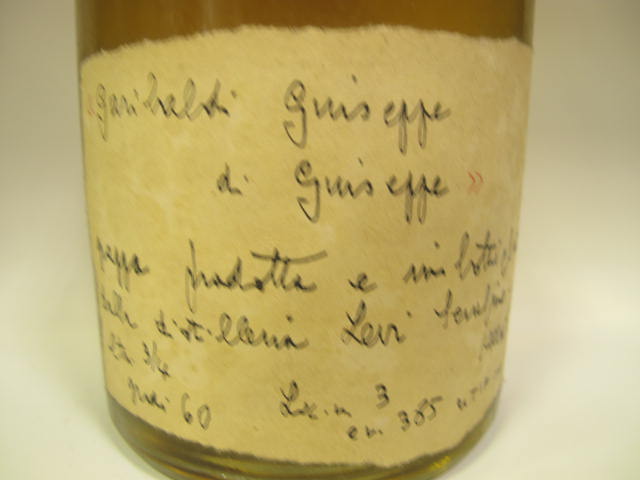 «Garibaldi Giuseppe
di Giuseppe»
grappa prodotta e imbottigli
dalla distilleria Levi Serafino
litri 3/4
gradi 60 Lic. n 3
em 365 UTIF